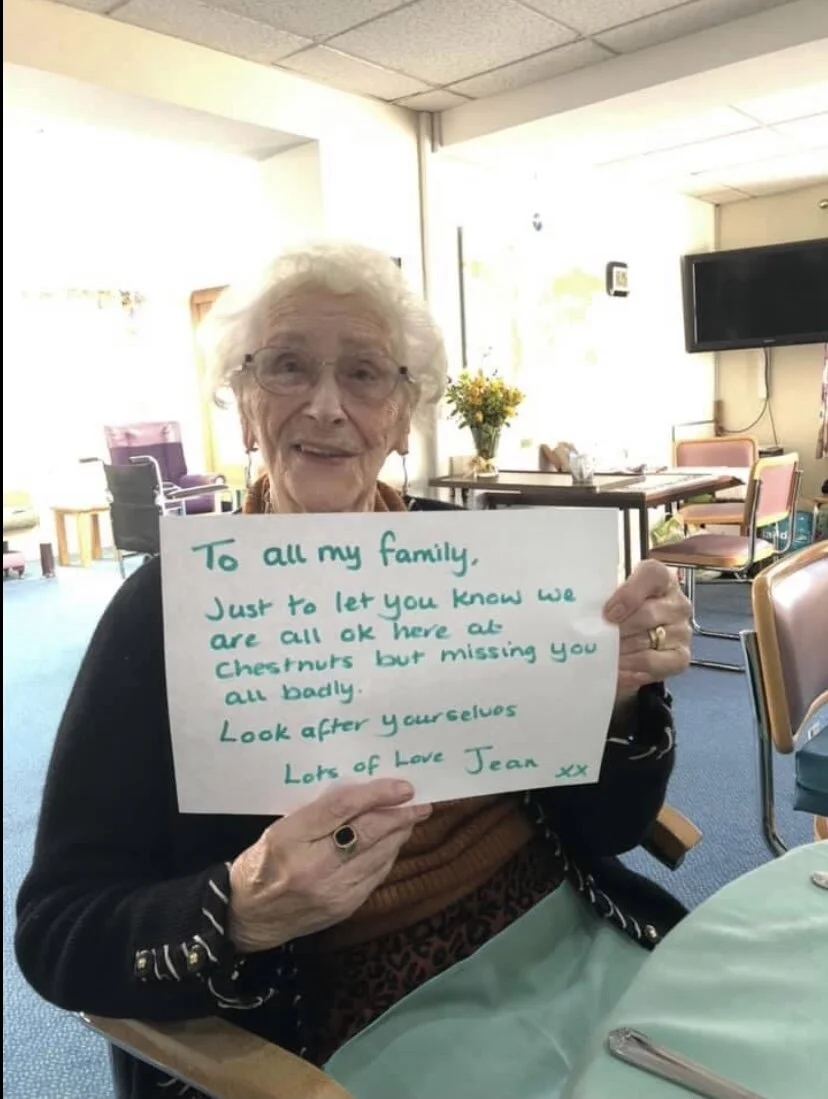 To all my family,
Just to let you know we
are all ok here at
Chestnuts but missing you
all badly.
Look after yourselves
Lots of Love Jean xx